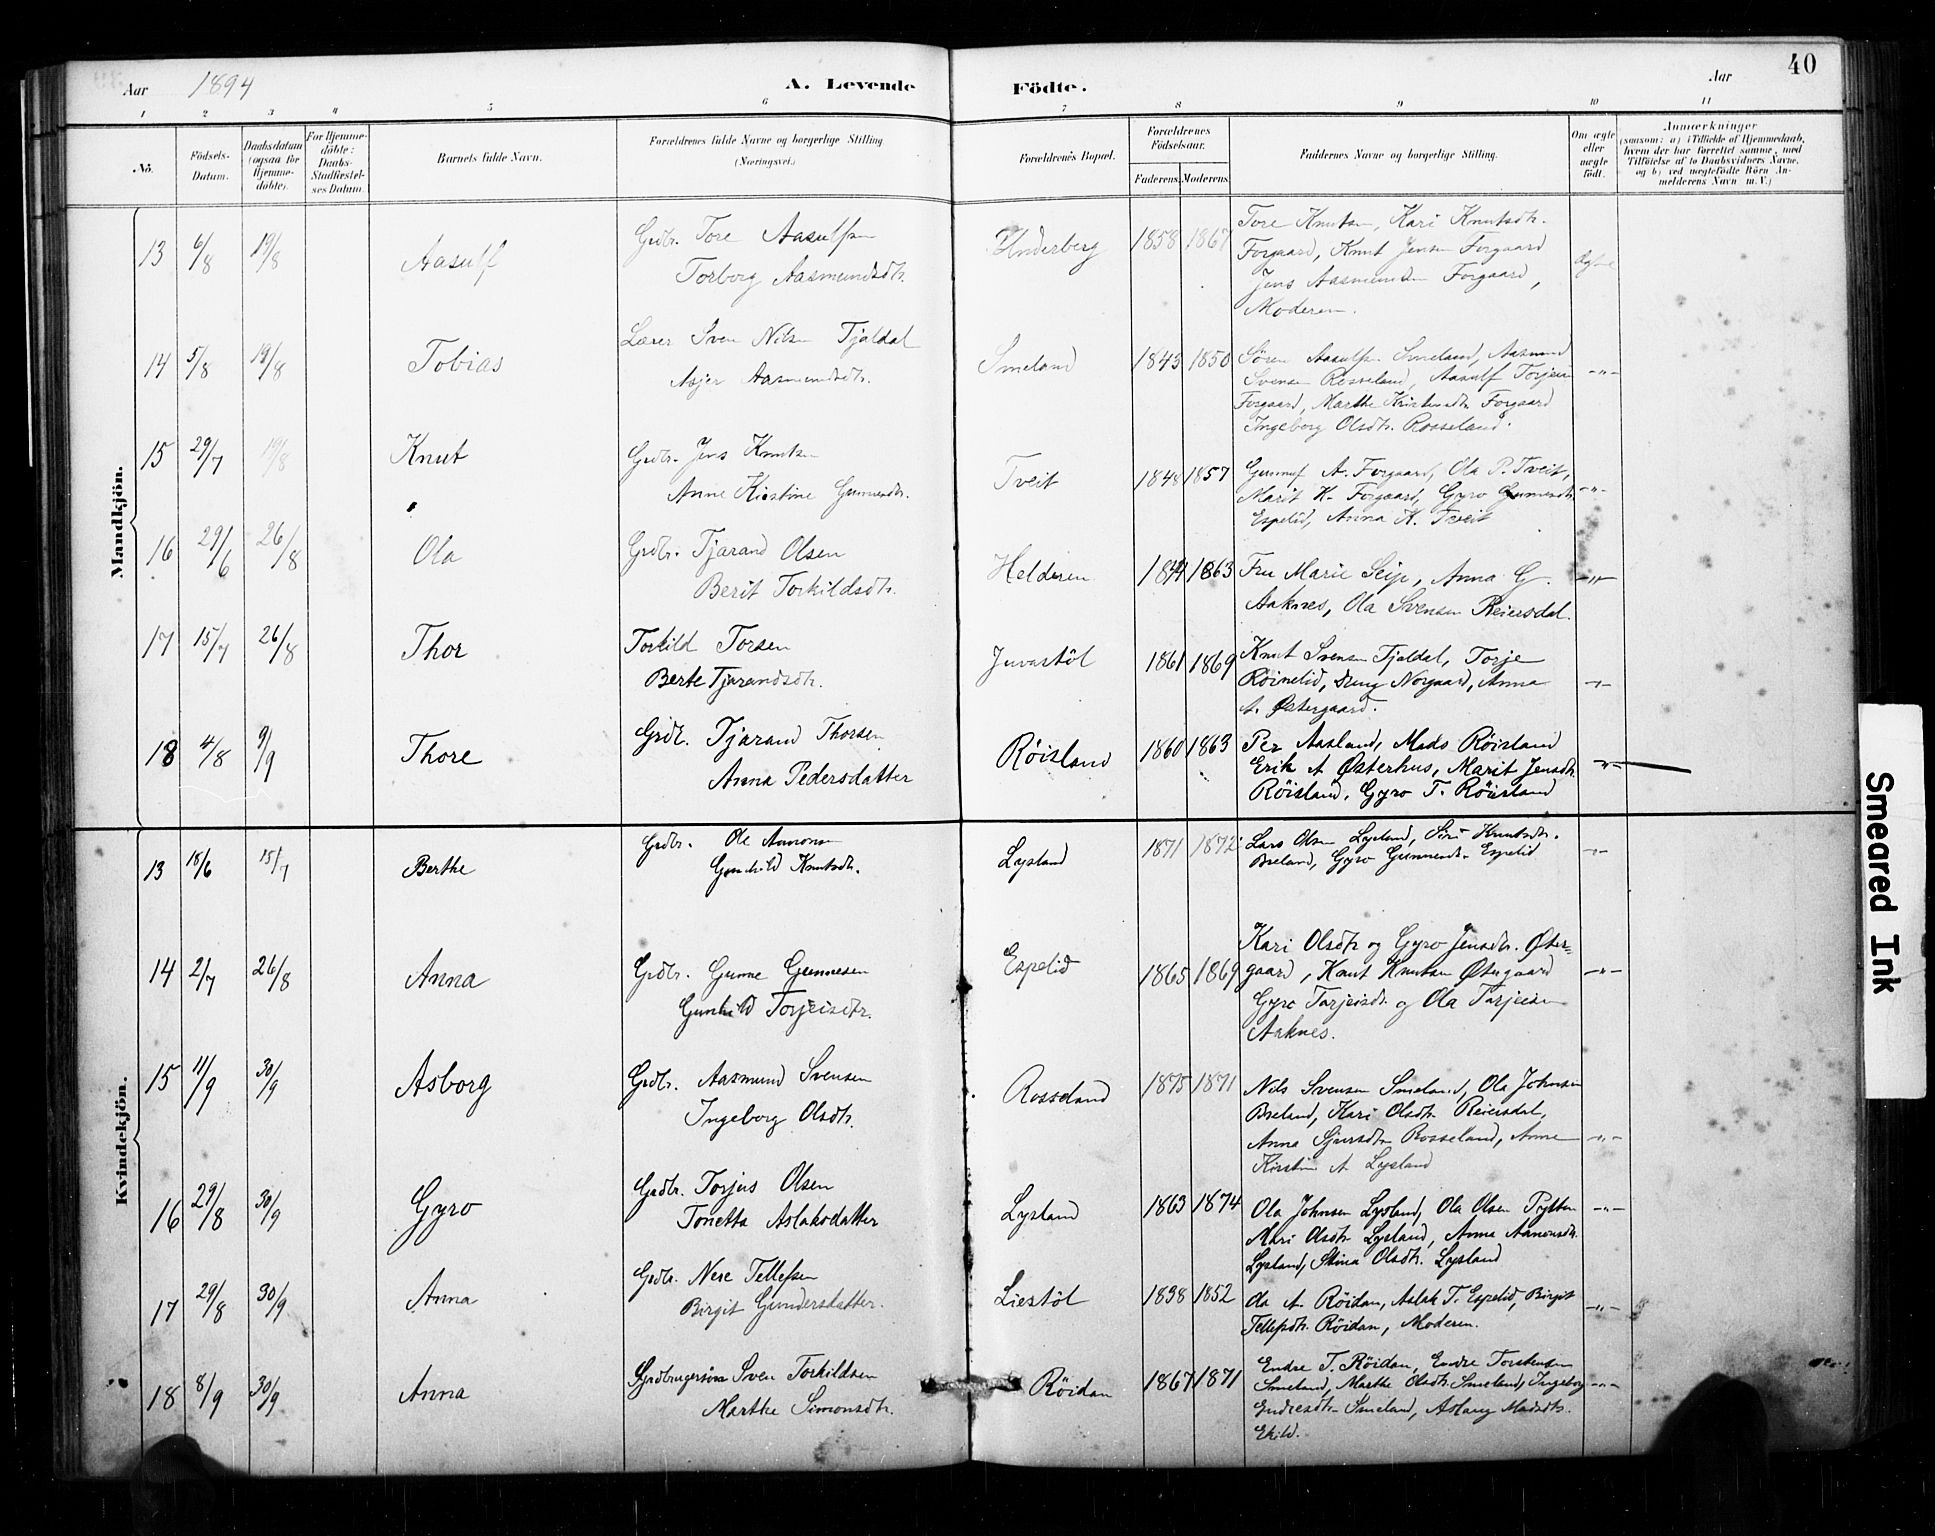 Aar 1894 A. Levende Födte. Aar 40
1 2 3 4 5 6 7 8 9 10 11
No. Födsels-Datum. Daabsdatum (ogsaa for Hjemmedöbte). For Hjemmedöbte: Daabs-Stadfæstelses Datum. Barnets fulde Navn. Forældrenes fulde Navne og borgerlige Stilling (Næringsvei.) Forældrenes Bopæl. Forældrenes Födselsaar. Faderens. Moderens. Faddernes Navne og borgerlige Stilling. Om ægte eller uægte födt. Anmærkninger (saasom: a) i Tilfælde af Hjemmedaab, hvem der har forrettet samme, med Tilföielse af to Daabsvidners Navne, og b) ved uægtefödte Börn Anmelderens Navn m. V.)
Mandkjön.
13 6/8 19/8 Aasulf Grdbr. Tore Aasulfsen Underberg 1858 1867 Tore Knutsen, Kari Knutsdtr.
Torborg Aasmundsdtr. Forgaard, Knut Jensen Forgaard
Jens Aasmundsen Forgaard,
Moderen.
14 5/8 19/8 Tobias Lærer Sven Nilsen Tjaldal Smeland 1843 1850 Sören Aasulfsen Smeland, Aasmund
Asjer Aasmundsdtr. Svensen Rosseland, Aasulf Torjeisen -"-
Forgaard, Marthe Kristensdtr. Forgaard
Ingeborg Olsdtr. Rosseland.
15 29/7 19/8 Knut Grdbr. Jens Knutsen Tveit 1848 1857 Gunnuf A. Forgaard, Ola P. Tveit,
Anne Kistine Gunnersdtr. Marit K. Forgaard, Gyro Gunnersdtr. -"-
Espelid, Anna K. Tveit
16 29/6 26/8 Ola Grdbr. Tjarand Olsen Helderen 1863 Fru Marie Seip, Anna G. -"-
Berit Torkildsdtr. Aaknes, Ola Svensen Reiersdal.
17 15/7 26/8 Thor Torkild Torsen Juvastöl 1861 1869 Knut Svensen Tjaldal, Torje
Berte Tjarandsdtr. Röinelid, Dreng Norgaard, Anna -"-
A. Østergaard.
18 4/8 9/9 Thore Grdb. Tjarand Thorsen Röisland 1860 1863 Per Aasland, Mads Röisland
Anna Pedersdatter Erik A Østerhus, Marit Jensdtr. -"-
Röisland, Gyro T. Röisland
Kvindekjön.
13 18/6 15/7 Berthe Grdbr. Ole Aamonsen Lysland 1871 1872 Lars Olsen Lysland, Siri Knutsdtr. -"-
Gunhild Knutsdtr. Breland, Gyro Gunnersdtr. Espelid
14 2/7 26/8 Anna Grdbr. Gunne Gunnesen Espelid 1865 1869 Kari Olsdtr og Gyro Jensdtr. Øster-
Gunhild Torjeisdtr. gaard, Knut Knutsen Østegaard -"-
Gyro Tarjeisdtr. og Ola Tarjeisen
Aaknes.
15 11/9 30/9 Asborg Grdbr. Aasmund Svensen Rosseland 1875 1871 Nils Svensen Smeland, Ola Johnsen
Ingeborg Olsdtr. Breland, Kari Olsdtr. Reiersdal,
Anna Sjursdtr Rosseland, Anne -"-
Kirstine A Lysland
16 29/8 30/9 Gyro Grdbr. Torjus Olsen Lysland 1863 1874 Ola Johnsen Lysland, Ola Olsen Pytten -"-
Tonetta Aslaksdatter Mari Olsdtr. Lysland, Anna Aamonsdtr.
Lysland, Stina Olsdtr. Lysland
17 29/8 30/9 Anna Grdbr. Nere Tellefsen Liestöl 1838 1852 Ola A. Röidan, Aslak T. Espelid, Birgit -"-
Birgit Gundersdatter. Tellefsdtr. Röidan, Moderen.
18 8/9 30/9 Anna Grdbrugersön Sven Torkildsen Röidan 1867 1871 Endre T. Röidan, Endre Torstensen
Marthe Simonsdtr. Smeland, Marthe Olsdtr. Smeland, Ingeborg -"-
Endresdtr. Smeland, Aslaug Madsdtr.
Ekild.
Smeared Ink